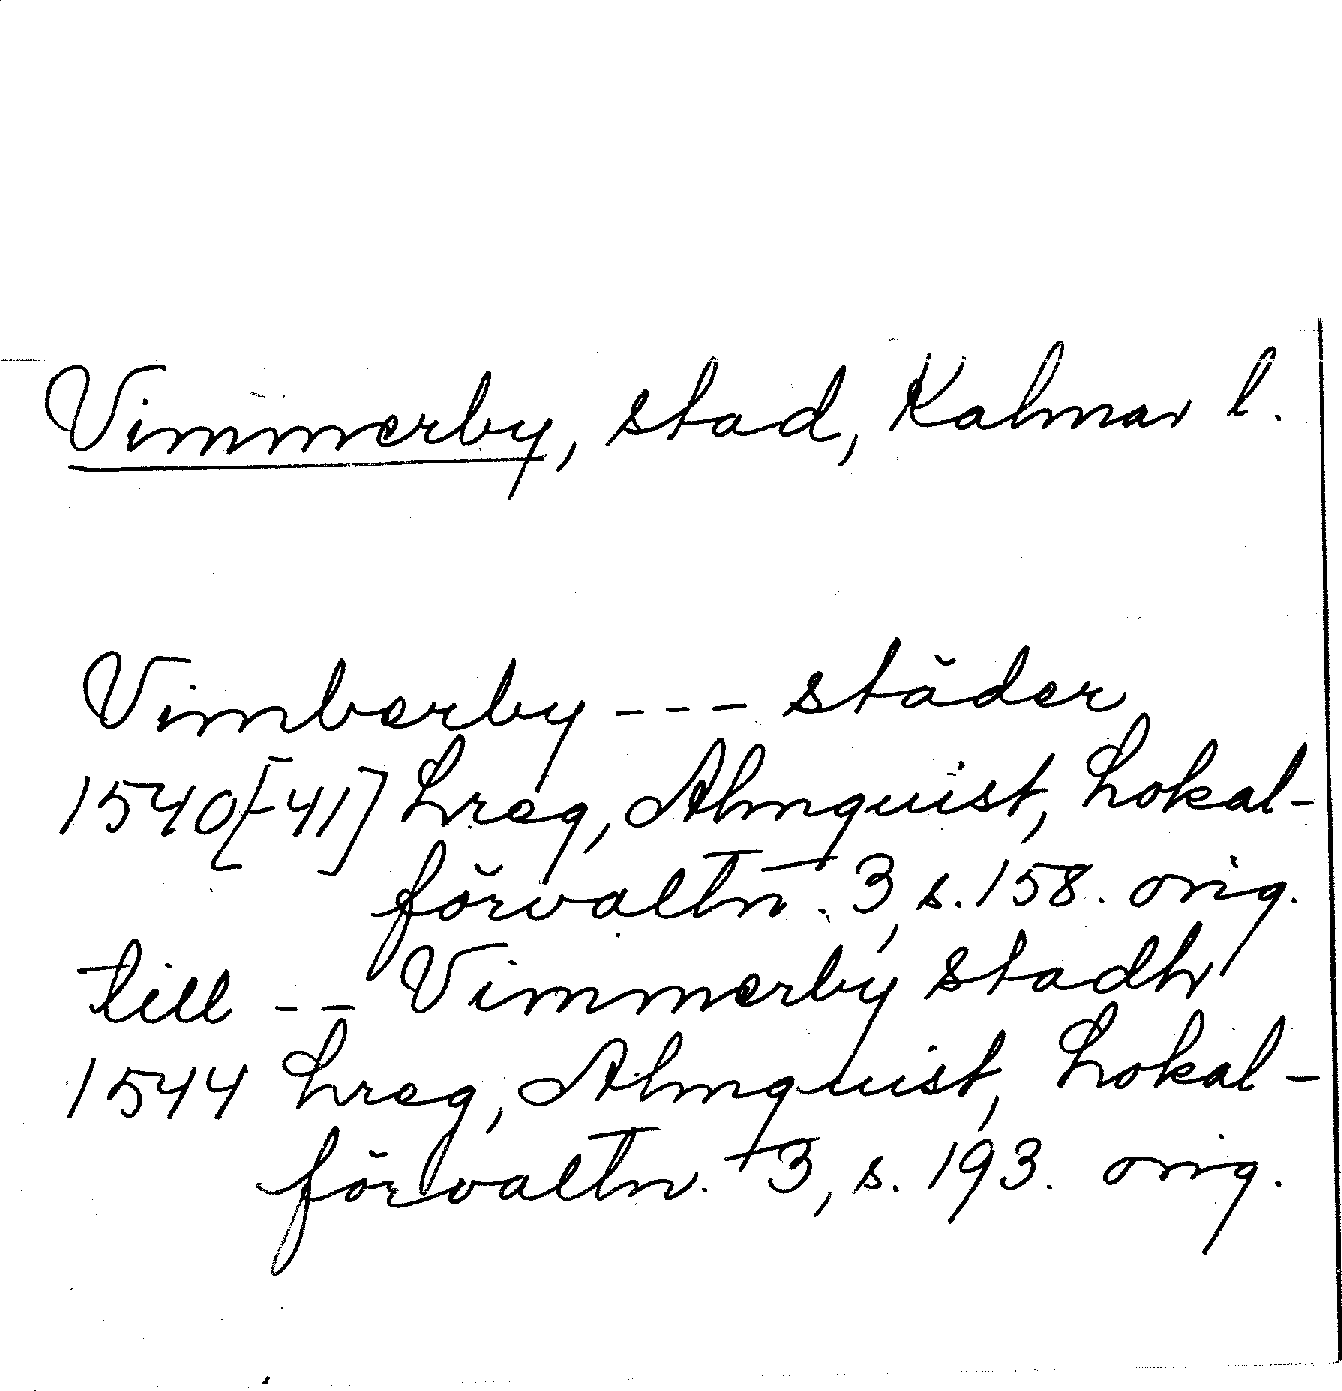 Vimmerby, stad, Kalmar l.
Vimberby --- städer
1540[-41] Lreg, Almquist, Lokal-
förvaltn. 3, s. 158. orig.
till -- Vimmerby stadh
1544 Lreg, Almquist, Lokal-
förvaltn. 3, s. 193. orig.